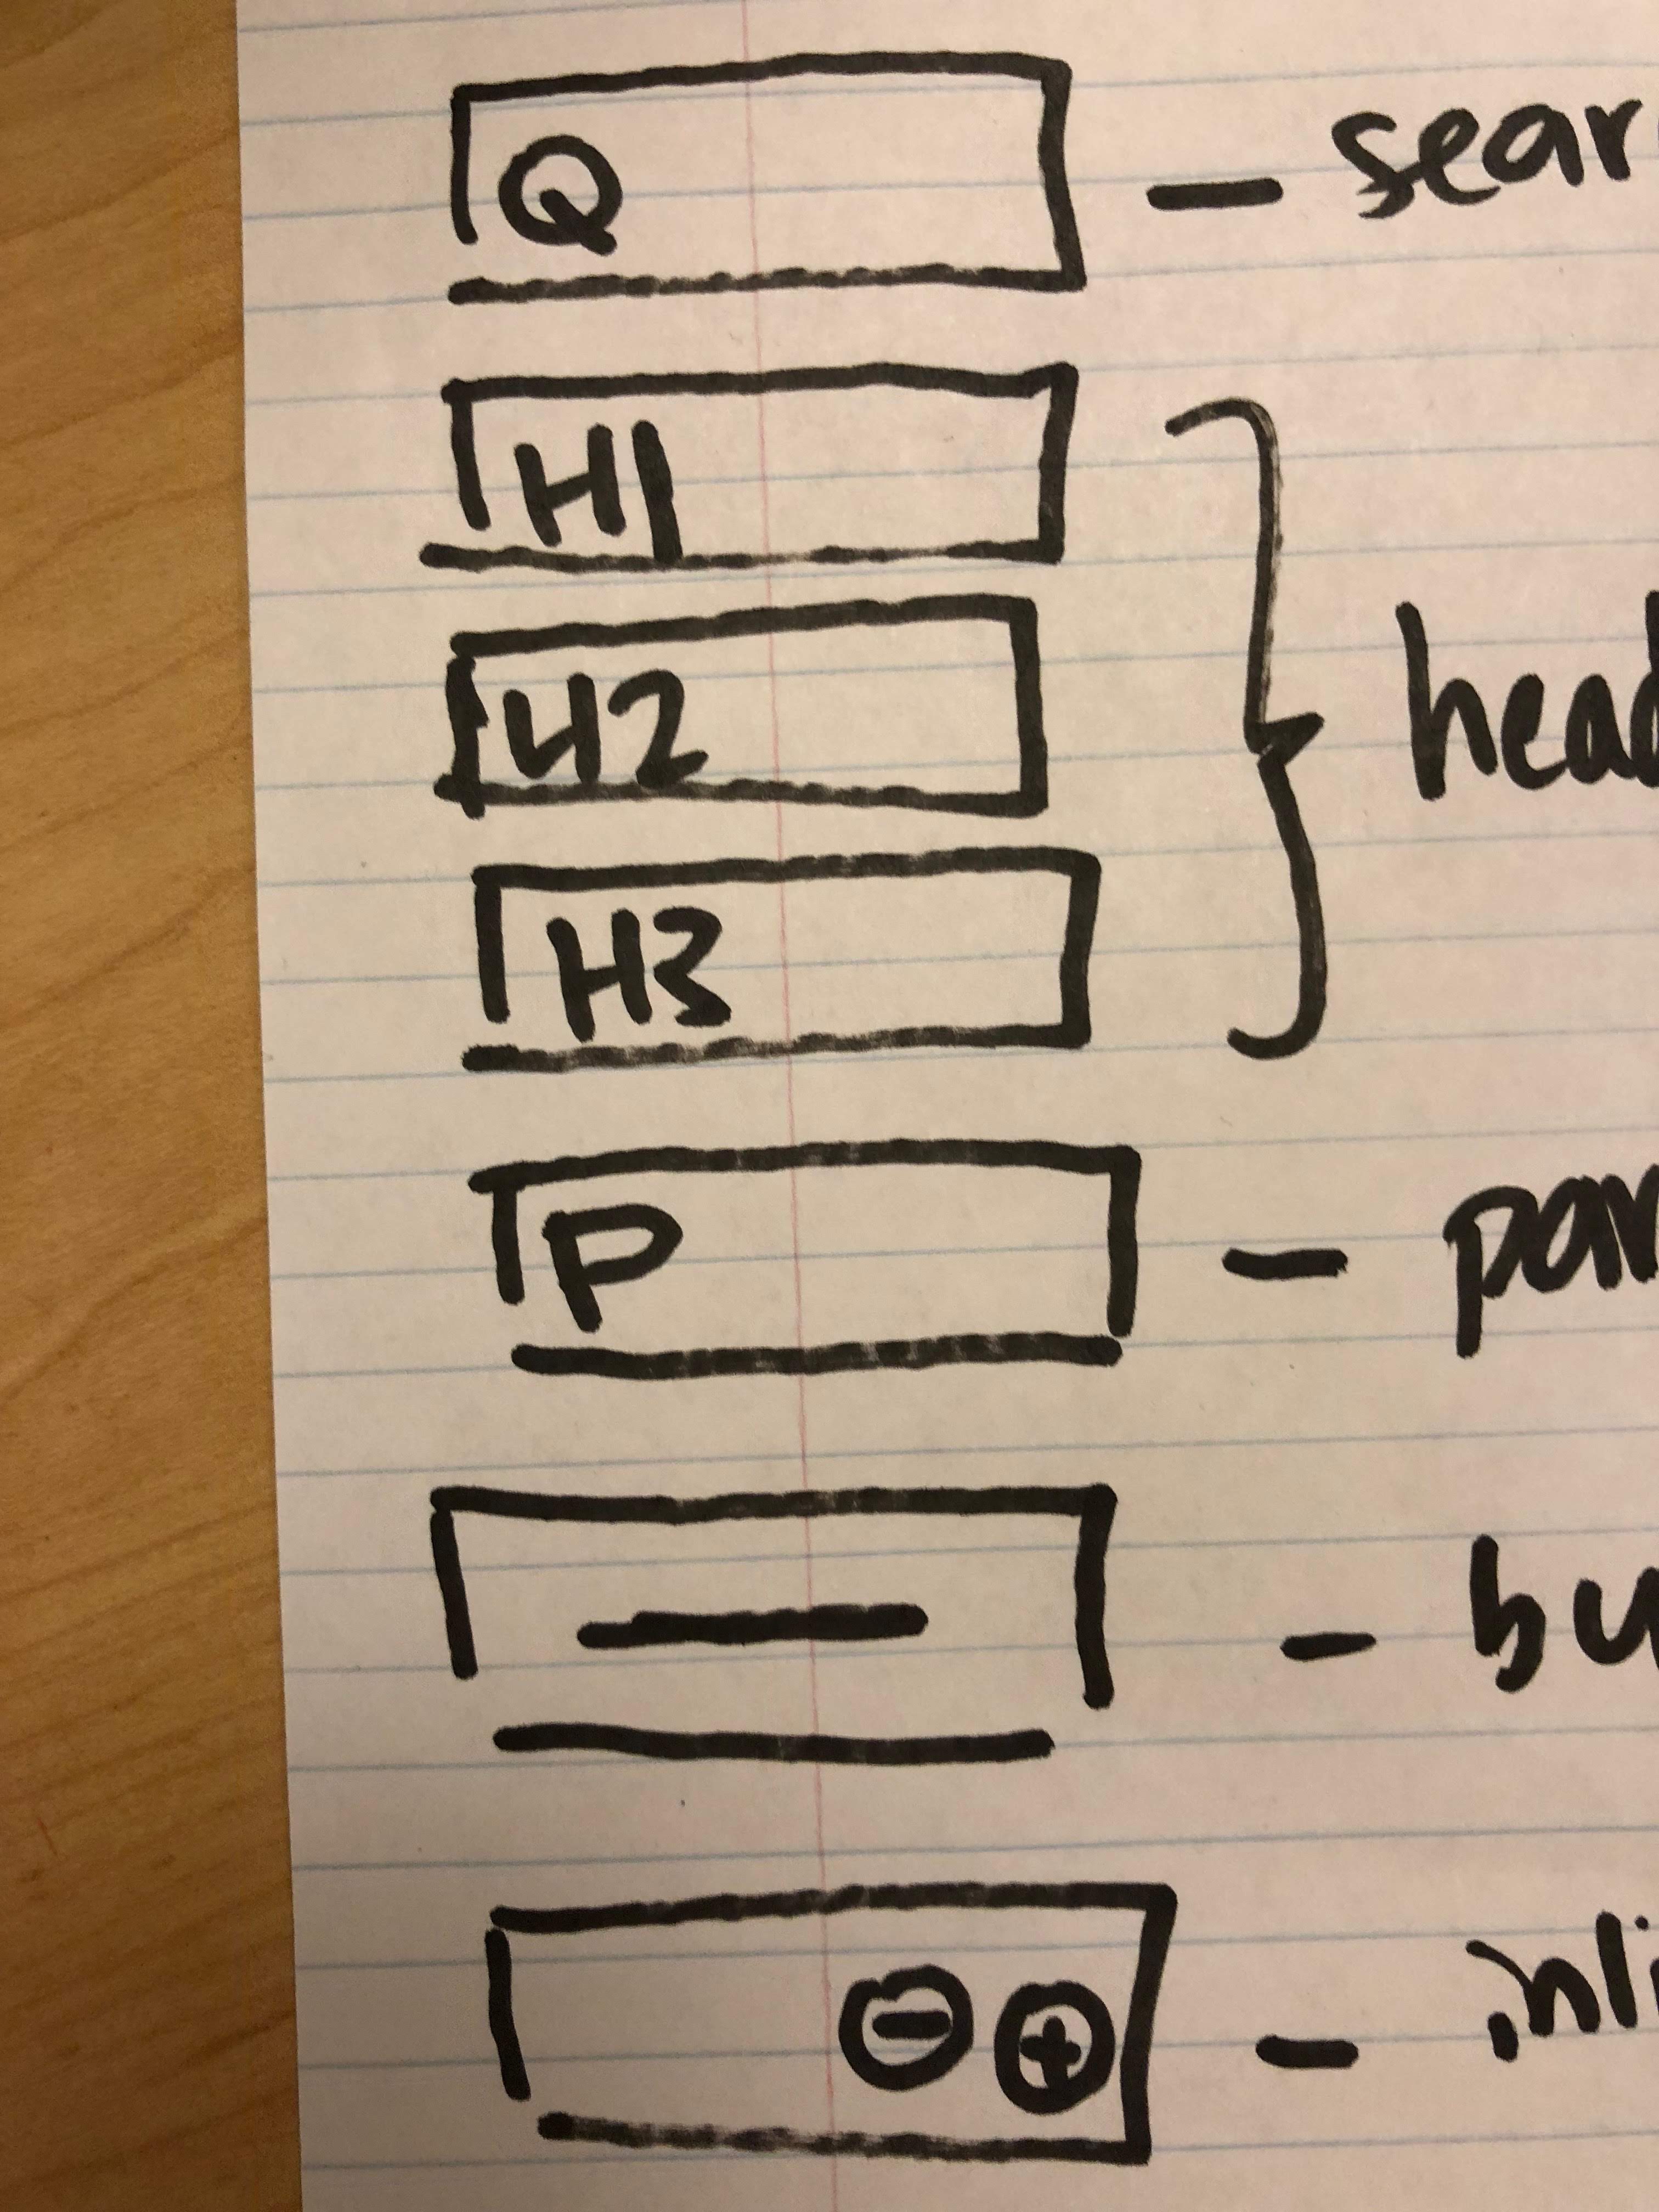 Q - sear
H1
H2 head
H3
P - par
- bu
- inli